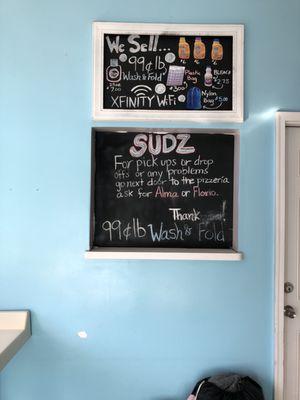 We Sell...
99¢ lb
Wash & Fold
Plastic
Bag
Bleach
$2.75
Nylon
Bag
$5.00
XFINITY WiFi
SUDZ
For pick ups or drop
offs or any problems
go next door to the pizzeria
ask for Alma or Florio.
Thank
99¢ lb Wash & Fold